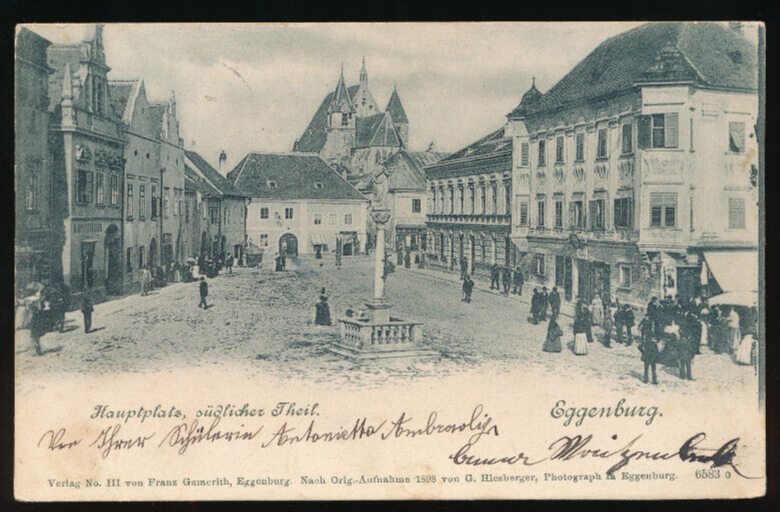 Hauptplatz, südlicher Theil.
Eggenburg.
Von Ihrer Schülerin Antonietta
Verlag No. III von Franz Gamerith, Eggenburg. Nach Orig.-Aufnahme 1898 von G. Hiesberger, Photograph in Eggenburg.
6583 o